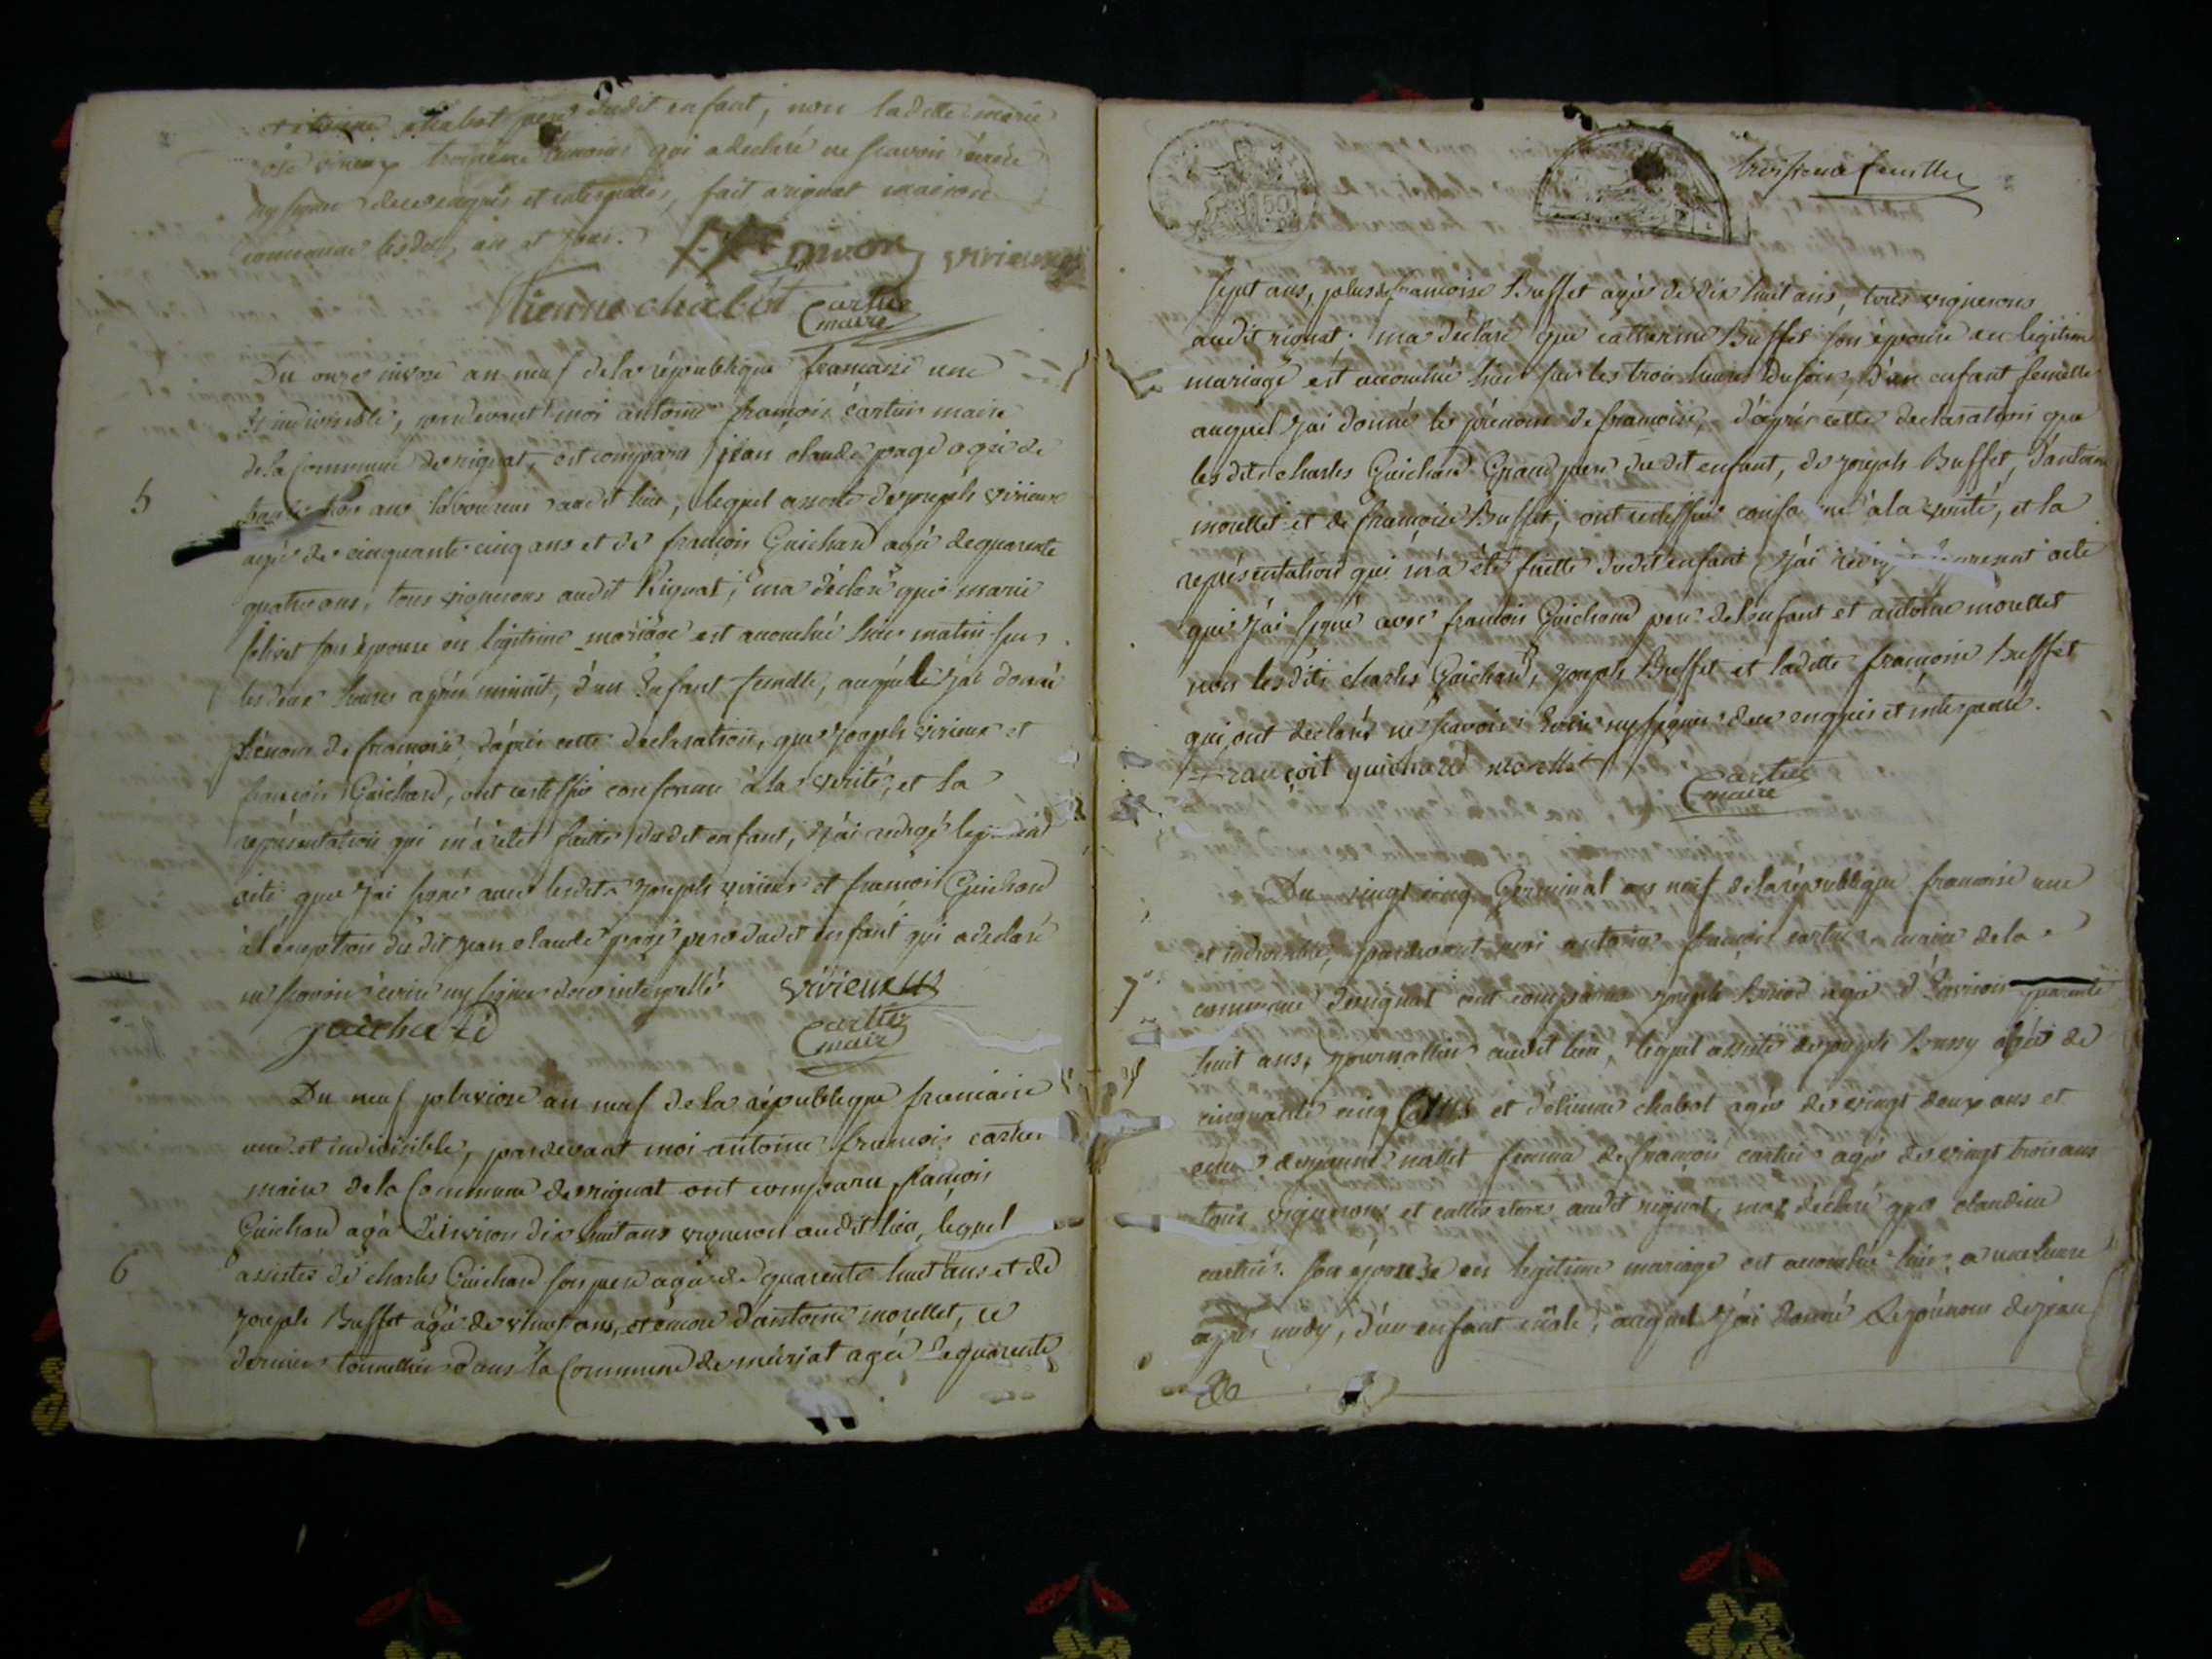 etienne chabot pere dudit enfant, non laditte marie
troisieme temoins qui a declaré ne scavoir écrire
ny signer de ce enquis et interpellés, fait a rignat maison
commune lesdits, an et jour.
pivon virieux
Etienne chabot Cartier
maire
Du onze nivose an neuf de la république francaise une
et indivisible, pardevant moi antoine françois cartier maire
de la Commune de rignat, est comparu jean claude page agé de
ans laboureur audit lieu, lequel assisté de joseph virieux
5
agé de cinquante cinq ans et de françois Guichard agé de quarente
quatre ans, tous vignerons audit Rignat, ma déclaré que marie
son épouse en légitime mariage est accouché hier matin sur
les deux heures après minuit, d'un Enfant femelle, auquel j'ai donné
Prénom de francoise, d'après cette declaration, que joseph virieux et
françois Guichard, ont certiffié conforme à la vérité, et la
représentation qui m'a été faitte dudit enfant, j'ai redigé le présent
acte que j'ai signé avec lesdits joseph virieux et françois Guichard
a l'exception du dit jean claude page pere dudit enfant qui a declaré
ne scavoir écrire ny signer de ce interpellé virieux
guichard Cartier
maire
Du neuf pluviose an neuf de la république francaise
une et indivisible, pardevant moi antoine francois cartier
maire de la Commune de rignat ont comparu françois
Guichard agé d'environ dix huit ans vigneron audit lieu, lequel
6
assistés de charles Guichard son pere agé de quarente huit ans et de
joseph Buffet agé de vingt ans, et encore d'antoine morellet, ce
dernier tonnellier dans la Commune de meriat agé de quarente
troisieme feuille
sept ans, plus de francoise Buffet agée de dix huit ans, tous vignerons
audit rignat. ma déclaré que catherine Buffet son épouse en legitime
mariage est accouché hier sur les trois heures du soir, d'un enfant femelle
auquel j'ai donné le prénom de francoise, d'après cette declaration que
lesdits charles Guichard Grand pere du dit enfant, de joseph Buffet, d'antoine
morellet et de francoise Buffet, ont certiffié conforme à la vérité, et la
représentation qui m'a été faitte dudit enfant j'ai rédigé le present acte
que j'ai signé avec francois Guichard pere de l'enfant et antoine morellet
non lesdits charles Guichard, joseph Buffet et laditte francoise Buffet
qui ont declarés ne scavoir Ecrire ny signer de ce enquis et interpellé.
françoit guichard morellet Cartier
maire
Du vingt cinq Germinal an neuf de la république francaise une
et indivisible, pardevant moi antoine francois cartier maire de la
7
commune de rignat ont comparus joseph agé d'Environ quarente
huit ans, journallier audit lieu, lequel assisté de joseph Bussy agé de
cinquante cinq ans et d'étienne chabot agé de vingt deux ans et
de jeanne nallet femme de françois cartier agée de vingt trois ans
tous vignerons et cultivateurs audit rignat, ma déclaré que claudine
cartier son épouse en legitime mariage est accouchée hier, a une heure
après midy, d'un enfant mâle, auquel j'ai donné Le prénom de jean